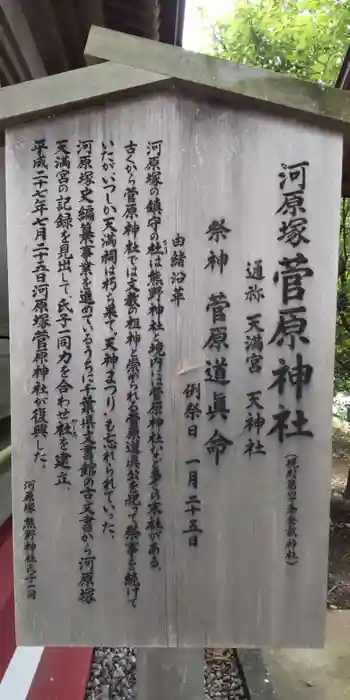 河原塚 菅原神社
通称 天満宮 天神社
祭神 菅原道眞命
例祭日 一月二十五日
由緒沿革
河原塚の鎮守の杜は熊野神社で境内には菅原神社など多くの末社がある。
古くから菅原神社では文教の祖神と崇められる菅原道眞公を祀って祭事を続けて
いたが、いつしか天満祠は朽ち果て、天神まつりも忘れられていった。
河原塚史編纂事業を進めているうちに千葉県文書館の古文書から河原塚
天満宮の記録を見出して氏子一同力を合わせ社を建立、
平成二十七年七月二十五日河原塚菅原神社が復興した。
河原塚 熊野神社氏子一同